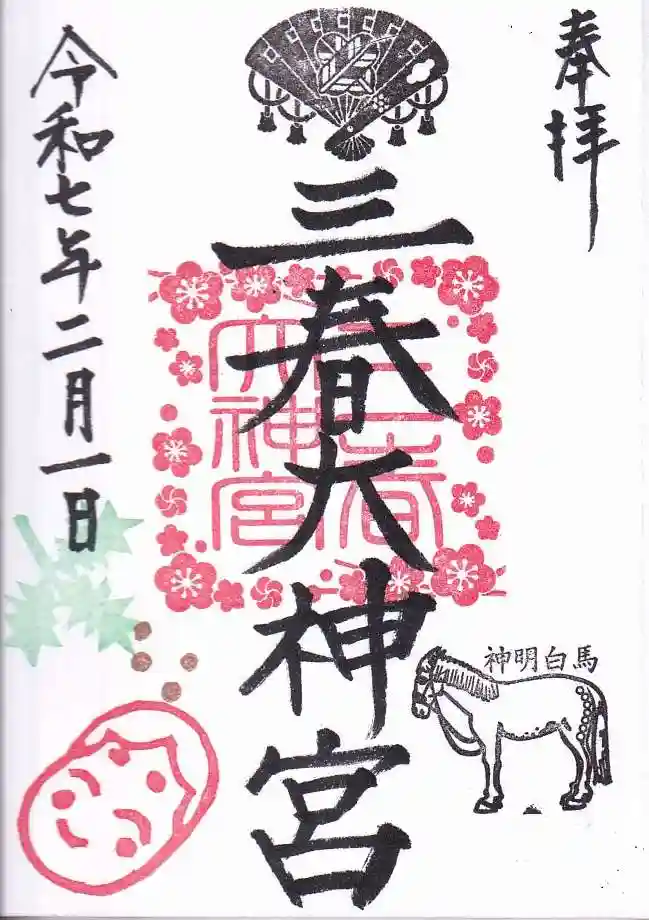 奉拝
三春大神宮
三春
大神宮
神明白馬
令和七年二月一日